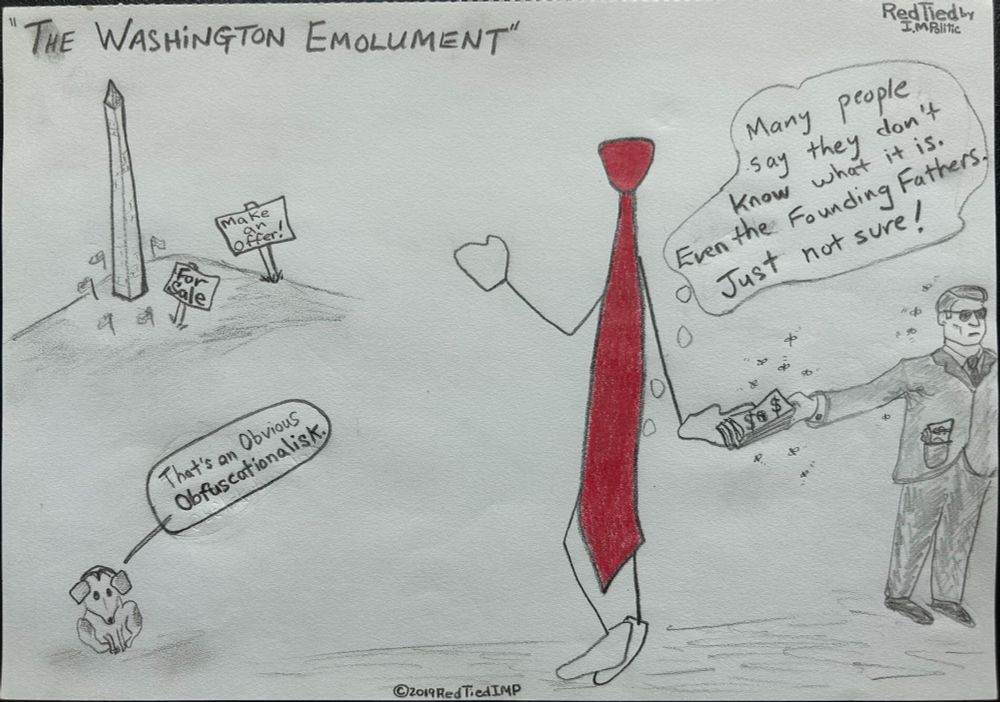 "THE WASHINGTON EMOLUMENT"
RedTied by
I.M Politic
Make
an
Offer!
For
Sale
Many people
say they don't
know what it is.
Even the Founding Fathers.
Just not sure!
$ $
That's an Obvious
Obfuscationalisk.
©2019RedTiedIMP